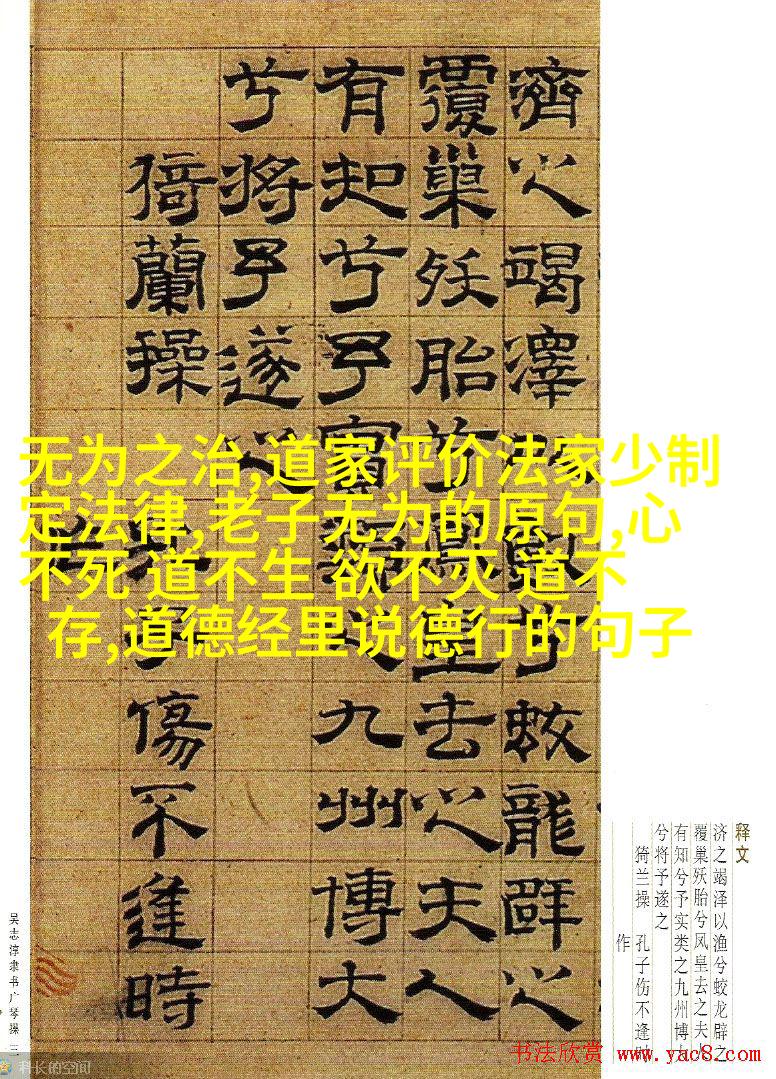 濟之竭澤兮蛟龍辟之
覆巢殀胎兮鳳皇去之夫人
有知兮予實類之九州博大
兮將予遂之
猗蘭操
子傷不逢時
无为之治,道家评价法家少制
定法律,老子无为的原句,心
不死 道不生 欲不灭 道不
存,道德经里说德行的句子
释文
济之竭泽以渔兮蛟龙辟之
覆巢殀胎兮凤皇去之夫人
有知兮予实类之九州博大
兮将予遂之
猗兰操 孔子伤不逢时
作
吴志淳隶书广琴操 三
科长的空间
书法欣赏 www.yac8.com